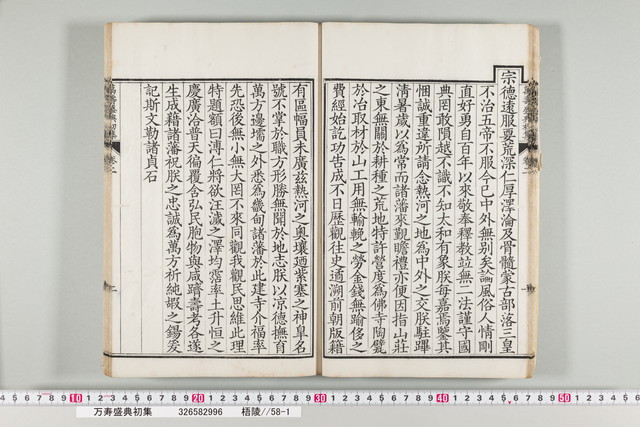 宗德遠服要荒深仁厚澤淪及骨髓蒙古部落三皇
不治五帝不服今已中外無别矣論風俗人情剛
直好勇自百年以來敬奉釋教竝無二法謹守國
典罔敢隕越不識不知太和有象朕每嘉焉鑒其
悃誠重違所請念熱河之地為中外之交朕駐蹕
清暑歲以為常而諸藩來覲瞻禮亦便因指山莊
之東無關於耕種之荒地特許營度為佛寺陶甓
於冶取材於山工用無輸輓之勞金錢無踰侈之
費經始訖功告成不日歷觀往史遹溯前朝版籍
有區幅員未廣茲熱河之奧壤迺紫塞之神皐名
號不掌於職方形勝無聞於地志朕以凉德撫有
萬方邊壖之外悉為畿甸諸藩於此建寺介福率
先恐後無小無大罔不來同觀我觀民思維此理
特題額曰溥仁將欲汪濊之澤均霑率土升恒之
慶廣洽普天徧覆含弘民胞物與咸躋壽考各遂
生成藉諸藩祝朕之忠誠為萬方祈純嘏之錫爰
記斯文勒諸貞石
万寿盛典初集 326582996 梧陵//58-1